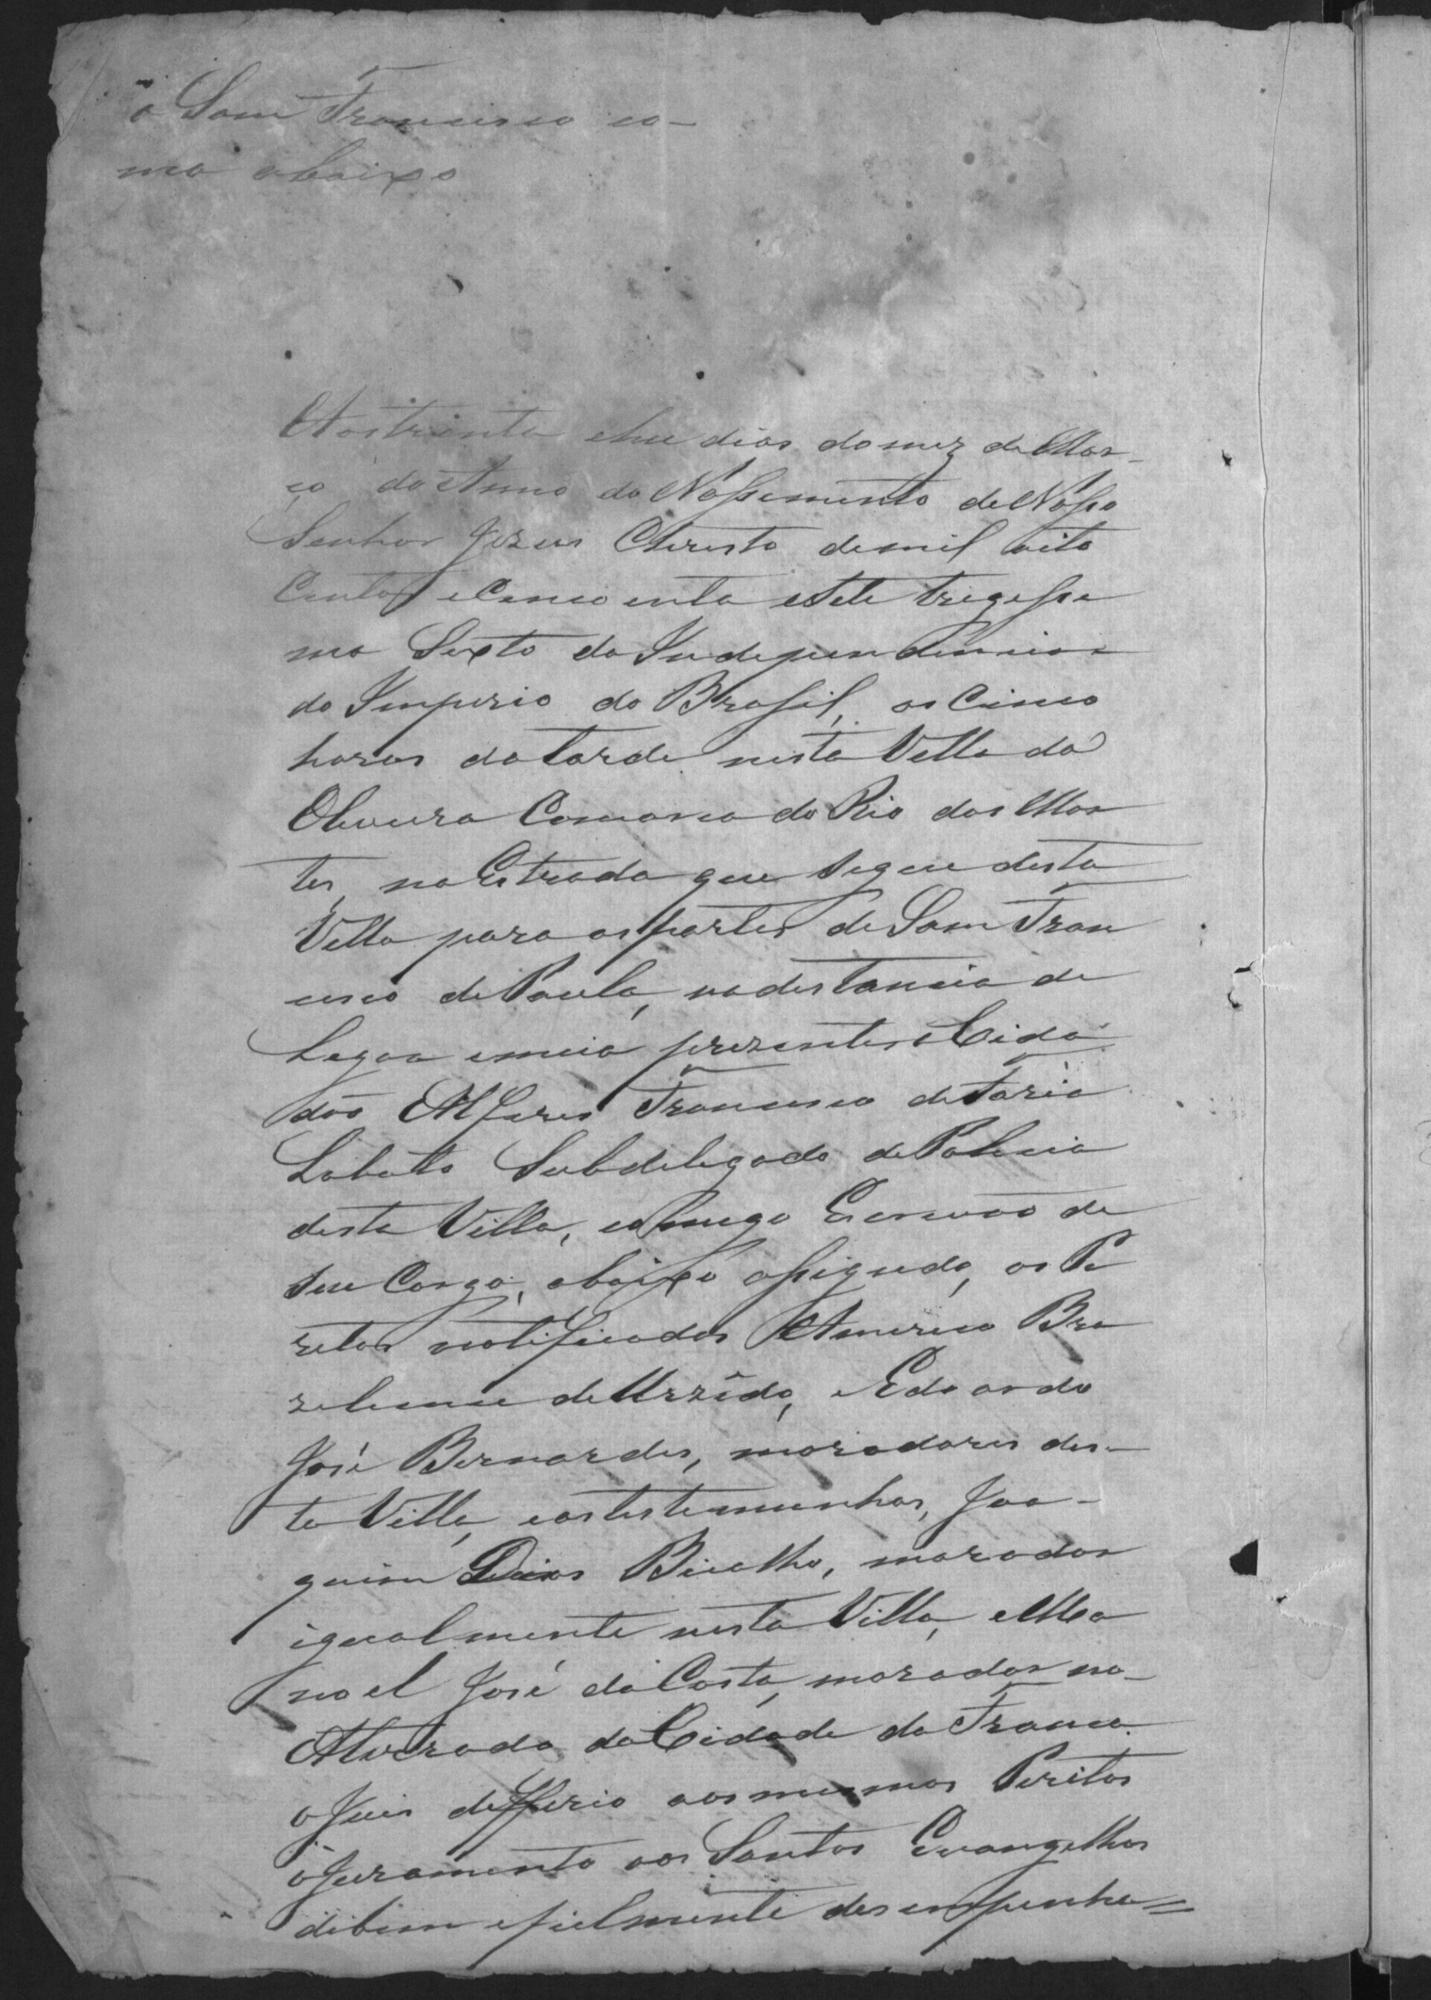 o Sam Francisco co-
mo abaixo
Aos trinta e hum dias do mez de Mar-
ço do Anno do Nassimento de Nosso
Senhor Jezus Christo de mil oito
Centos e Cincoenta e Sete trigessi
mo Sexto da Independencia
do Imperio do Brasil, as Cinco
horas da tarde nesta Villa da
Oliveira Comarca do Rio das Mor
tes, na Estrada que Segue desta
Villa para as partes de Sam Fran
cisco de Paula, na distancia de
Legoa e meia prezentes o Cida
dão Alferes Francisco de Faria
Lobatto Subdelegado de Policia
desta Villa, comigo Escrivão de
seu Cargo, abaixo assignado, os Pe
ritos notificados Americo Bra
ziliense de Urzêdo, e Edoardo
José Bernardes, moradores des-
ta Villa, e as testemunhas, Joa-
quim Dias Bicalho, morador
igualmente nesta Villa, e Ma
noel José da Costa, morador na
da Cidade da Franca.
o Juis defferio aos mesmos Peritos
o juramento aos Santos Evangelhos
de bem e fielmente desempenha=